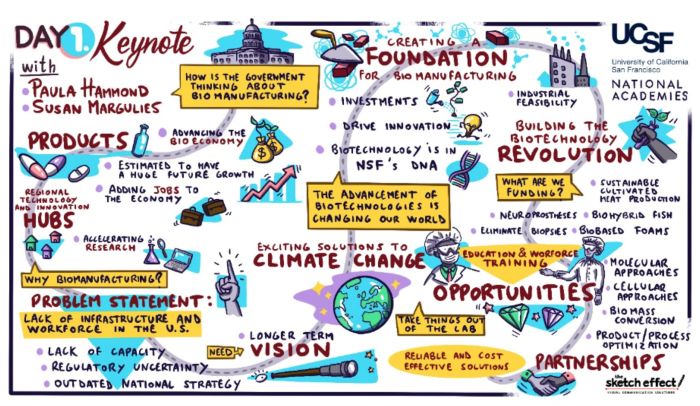 DAY 1. Keynote
with
PAULA HAMMOND
SUSAN MARGULIES
HOW IS THE GOVERNMENT
THINKING ABOUT
BIOMANUFACTURING?
PRODUCTS
ADVANCING THE
BIO ECONOMY
ESTIMATED TO HAVE
A HUGE FUTURE GROWTH
ADDING JOBS TO
THE ECONOMY
REGIONAL
TECHNOLOGY
AND INNOVATION
HUBS
ACCELERATING
RESEARCH
WHY BIOMANUFACTURING?
PROBLEM STATEMENT:
LACK OF INFRASTRUCTURE AND
WORKFORCE IN THE U.S.
LACK OF CAPACITY
REGULATORY UNCERTAINTY
OUTDATED NATIONAL STRATEGY
NEED
LONGER TERM
VISION
CREATING A
FOUNDATION
FOR BIOMANUFACTURING
INVESTMENTS
DRIVE INNOVATION
BIOTECHNOLOGY IS IN
NSF'S DNA
INDUSTRIAL
FEASIBILITY
THE ADVANCEMENT OF
BIOTECHNOLOGIES IS
CHANGING OUR WORLD
EXCITING SOLUTIONS TO
CLIMATE CHANGE
TAKE THINGS OUT
OF THE LAB
RELIABLE AND COST
EFFECTIVE SOLUTIONS
UCSF
University of California
San Francisco
NATIONAL
ACADEMIES
BUILDING THE
BIOTECHNOLOGY
REVOLUTION
WHAT ARE WE
FUNDING?
SUSTAINABLE
CULTIVATED
MEAT PRODUCTION
NEUROPROSTHESES
BIOHYBRID FISH
ELIMINATE BIOPSIES
BIOBASED FOAMS
EDUCATION & WORFORCE
TRAINING
OPPORTUNITIES
MOLECULAR
APPROACHES
CELLULAR
APPROACHES
BIOMASS
CONVERSION
PRODUCT/PROCESS
OPTIMIZATION
PARTNERSHIPS
the
sketch effect!
VISUAL COMMUNICATION SOLUTIONS